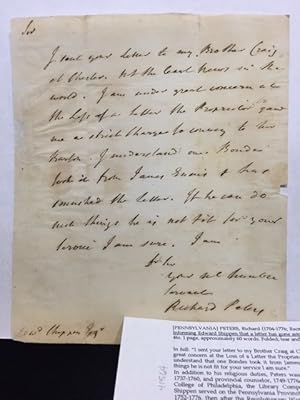 Sir
I sent your letter to my Brother Craig
at Chester. Not the least News in the
world. I am under great concern at
the Loss of a Letter the Proprietor gave
me a strict Charge to convey to
I understand one Bonden
took it from James and has
the letter. If he can do
such things he is not fit for your
Service I am sure. I am
Sir
your humble
Servant
Richard Peters
Edwd Shippen Esqr
[PENNSYLVANIA] PETERS, Richard (1704-1776, Rector
informing Edward Shippen that a letter has gone
4to, 1 page, approximately 60 words. Folded, tear and
In full: "I sent your letter to my Brother Craig at C
great concern at the Loss of a Letter the Proprietor
understand that one Bonden took it from James
things he is not fit for your service I am sure."
In addition to his religious duties, Peters was
1737-1760, and provincial councilor, 1749-1776
College of Philadelphia, the Library Company
Shippen served on the Pennsylvania Provincial